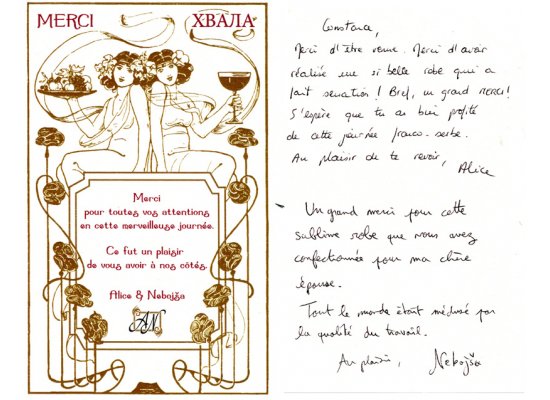 MERCI
ХВАЛА
Merci
pour toutes vos attentions
en cette merveilleuse journée.
Ce fut un plaisir
de vous avoir à nos côtés.
Alice & Nebojša
AN
Constance,
Merci d'être venue. Merci d'avoir
réalisé une si belle robe qui a
fait sensation ! Bref, un grand merci !
J'espère que tu as bien profité
de cette journée franco-serbe.
Au plaisir de te revoir,
Alice
Un grand merci pour cette
sublime robe que vous avez
confectionnée pour ma chère
épouse.
Tout le monde était médusé par
la qualité du travail.
Au plaisir,
Nebojša